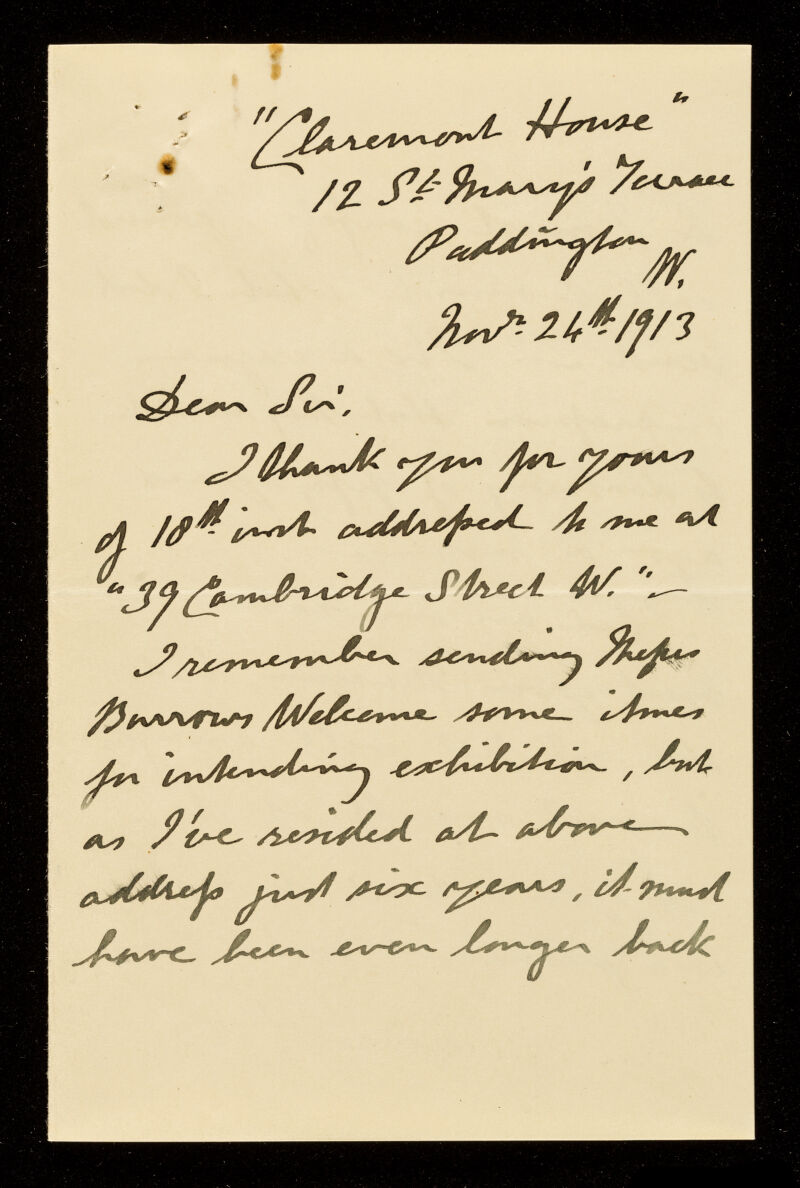 "Claremont House"
12 St. Mary's Terrace
Paddington
W.
Novr. 24th. 1913
Dear Sir,
I thank you for yours
of 18th. inst addressed to me at
"39 Cambridge Street W." –
I remember sending Messrs
Burrows Welcome some itmes
for intending exhibition, but
as I've resided at above
address just six years, it must
have been even longer back